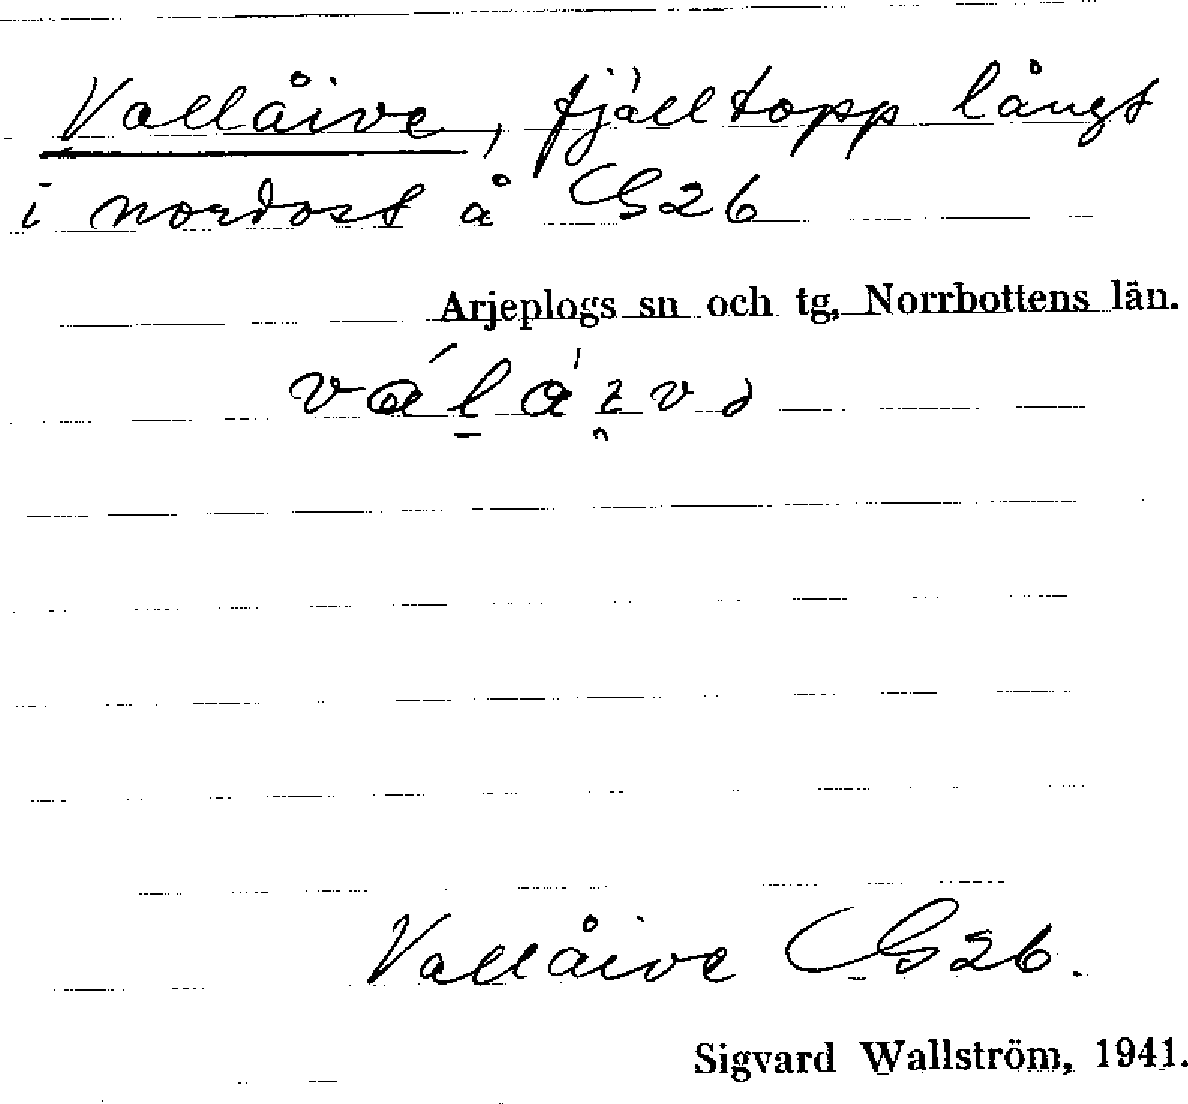 Vallåive, fjälltopp långt
i nordost å GS26
Arjeplogs sn och tg, Norrbottens län.
Vallåive GS26.
Sigvard Wallström, 1941.